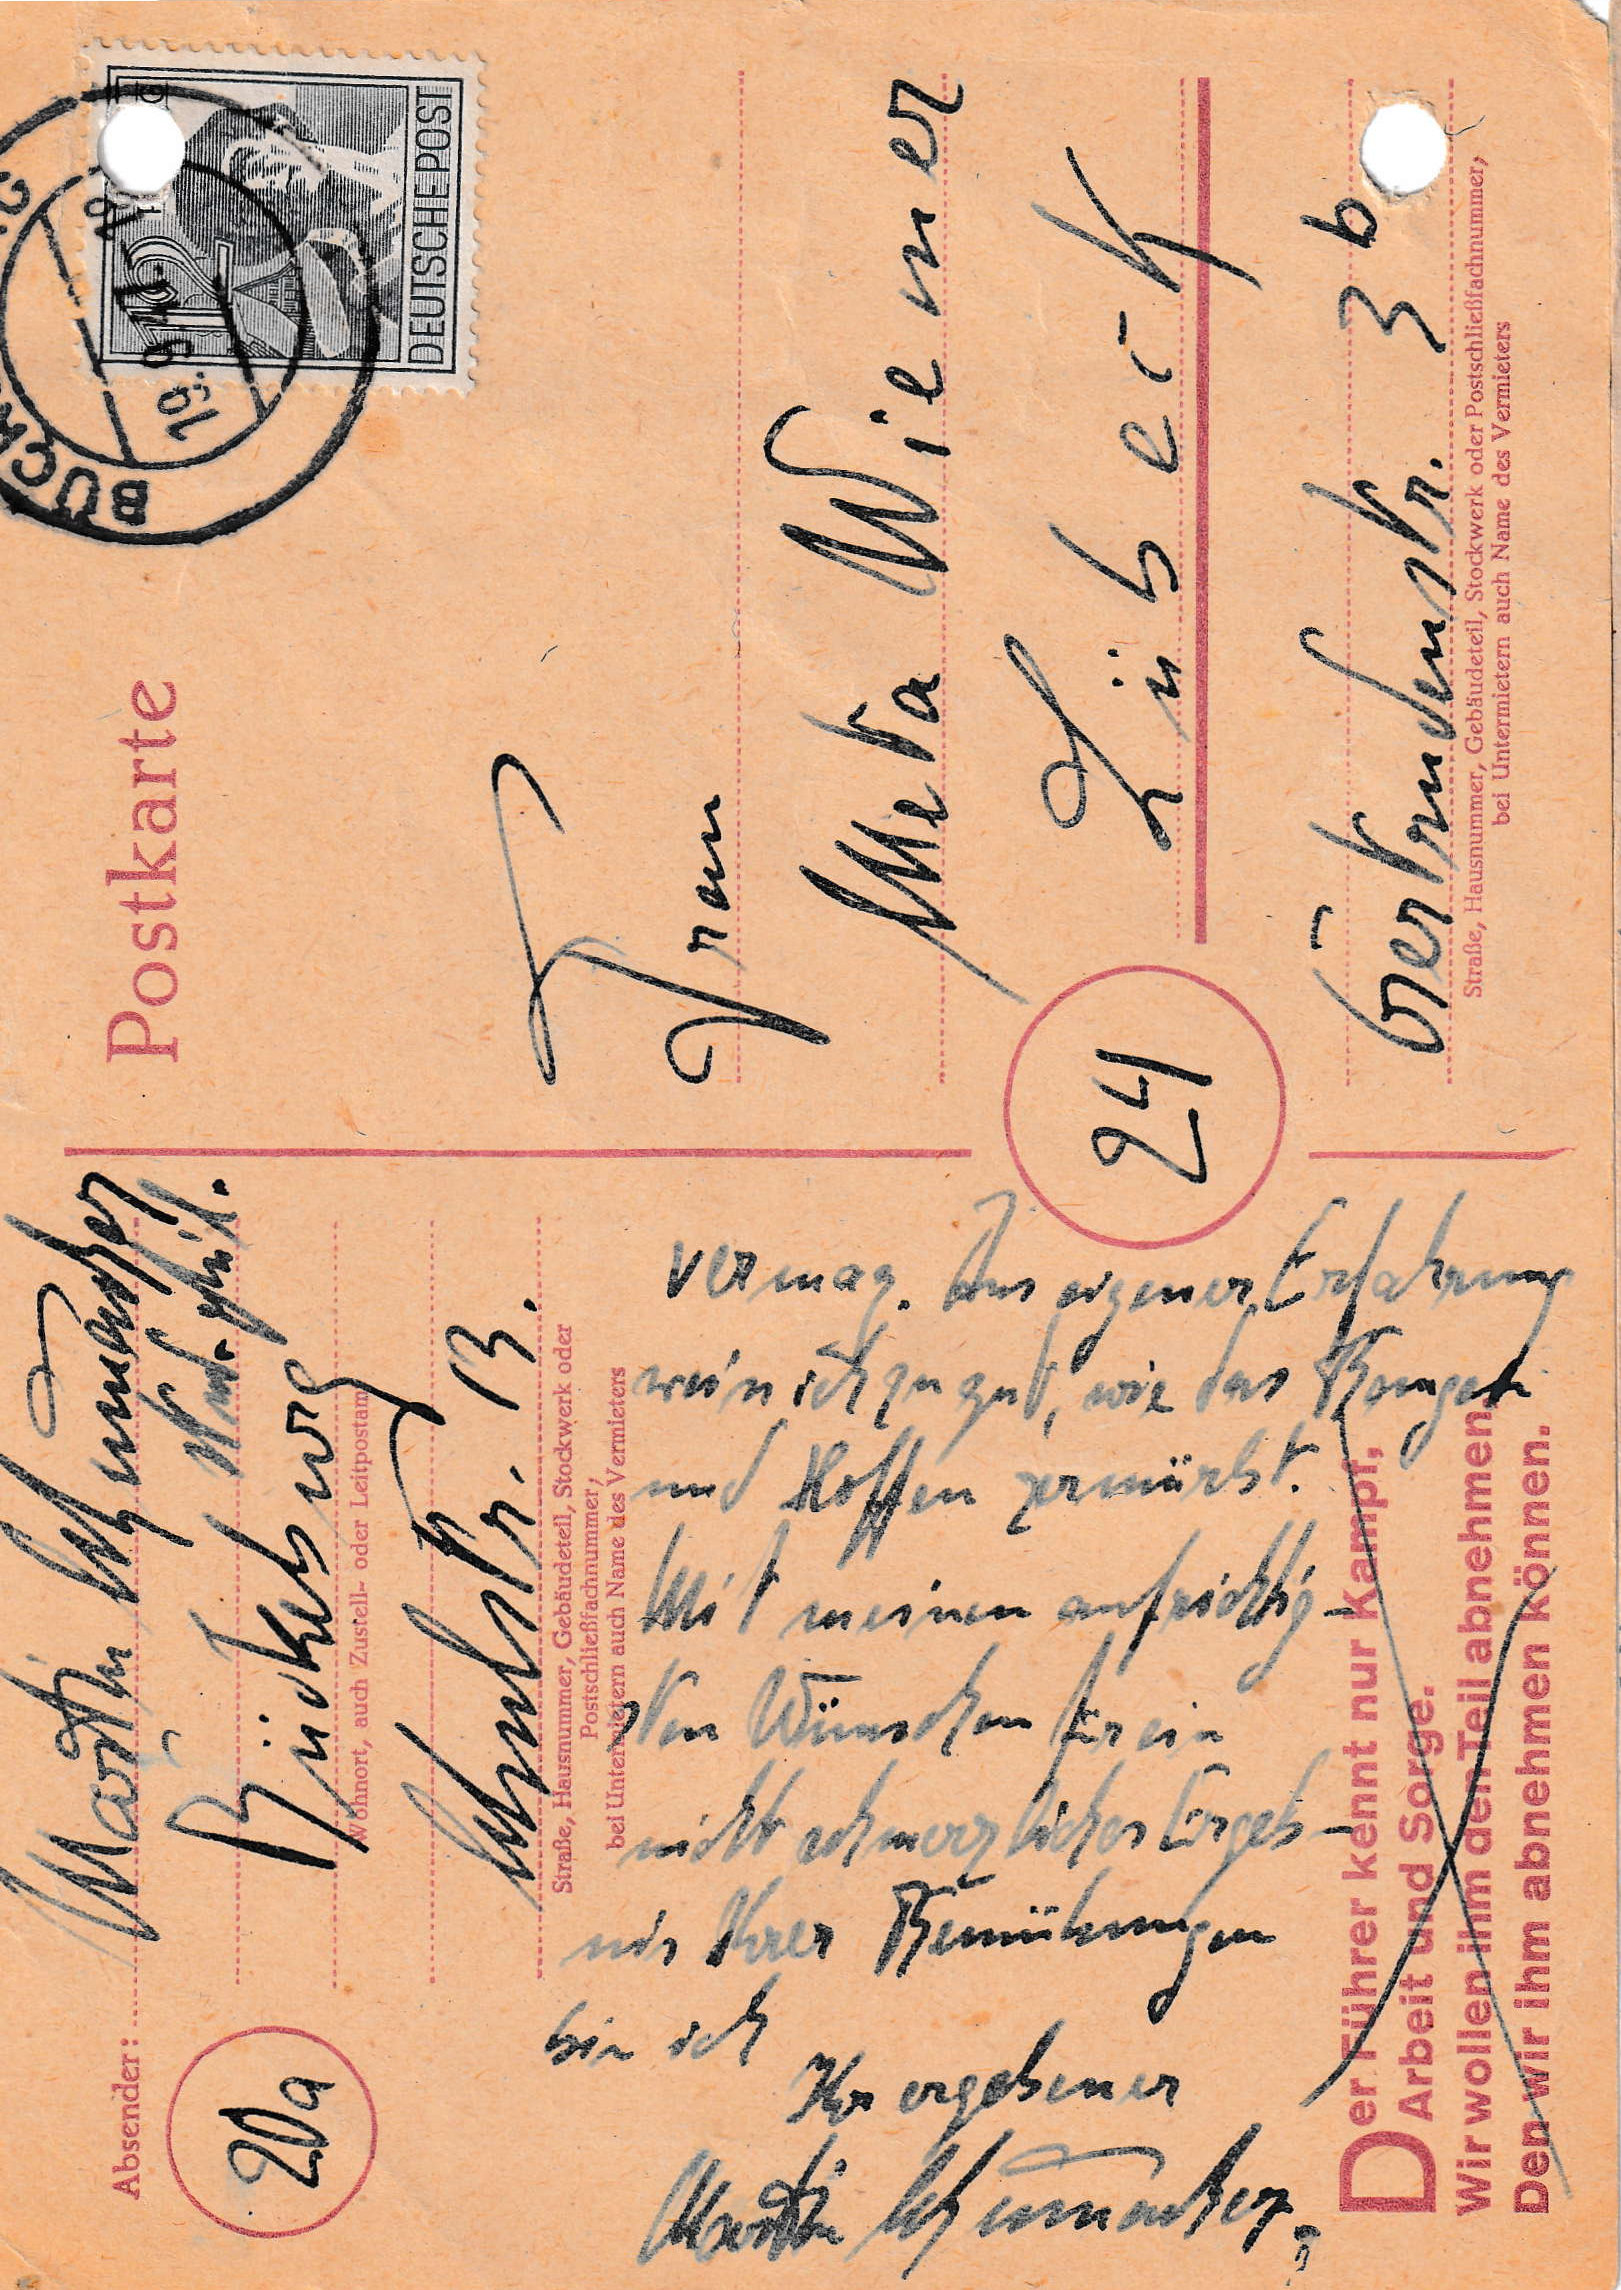 Postkarte
Absender:
Martin Schumacher
stud. phil.
Bückeburg
Wohnort, auch Zustell- oder Leitpostamt
Schulstr. 13.
Straße, Hausnummer, Gebäudeteil, Stockwerk oder
Postschließfachnummer;
bei Untermietern auch Name des Vermieters
20a
vermag. Aus eigener Erfahrung
weiss ich zu gut, wie das Bangen
und Hoffen zermürbt.
Mit meinen aufrichtig-
sten Wünschen für ein
nicht schmerzliches Ergeb-
nis Ihrer Bemühungen
bin ich
Ihr ergebener
Martin Schumacher.
Der Führer kennt nur Kampf,
Arbeit und Sorge.
Wir wollen ihm den Teil abnehmen,
Den wir ihm abnehmen können.
DEUTSCHE POST
12
BÜCK
19.9.47
Frau
Meta Wiener
24
Lübeck
Gertrudenstr. 3 b
Straße, Hausnummer, Gebäudeteil, Stockwerk oder Postschließfachnummer;
bei Untermietern auch Name des Vermieters